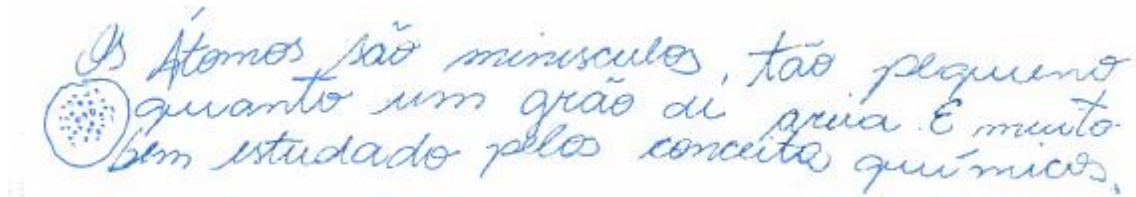 Os Átomos são minisculos, tão pequeno
quanto um grão di areia. E muito
bem estudado pelos conceitos químicos.